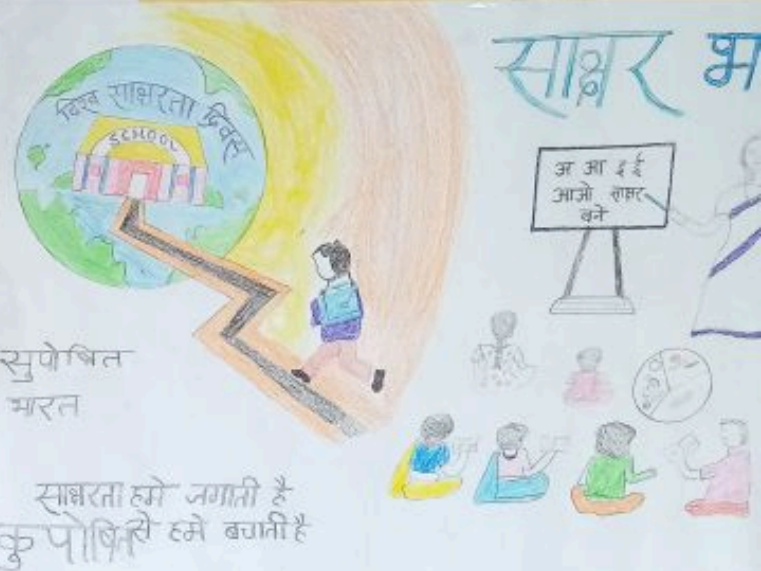 साक्षर भ
विश्व साक्षरता दिवस
SCHOOL
अ आ इ ई
आओ साक्षर
बने
सुपोषित
भारत
साक्षरता हमे जगाती है
कुपोषित से हमे बचाती है